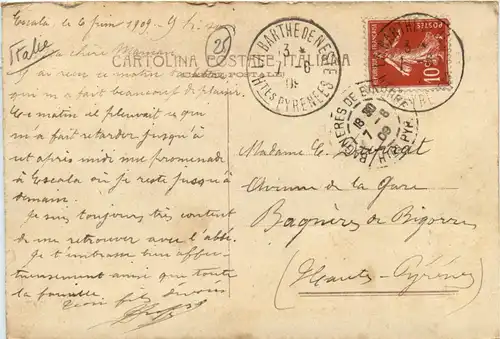 Escala, le 6 juin 1909
Italie
28
Ma chère Maman
J'ai reçu ce matin
qui m'a fait beaucoup de plaisir.
Ce matin il pleuvait ce qui
m'a fait retarder jusqu'à
cet après midi ma promenade
à Escala où je reste jusqu'à
demain.
Je suis toujours très content
de me retrouver avec l'abbé.
Je t'embrasse bien affec-
tueusement ainsi que toute
la famille.
Ton fils dévoué
CARTOLINA POSTALE ITALIANA
(CARTE POSTALE)
LABARTHE DE NESTE
3 *
6
09
HTES PYRENEES
POSTES
10
BAGNERES DE BIGORRE
18 30
7 6
09
HTES PYR.
Madame C.
Avenue de la Gare
Bagnères de Bigorre
(Hautes-Pyrénées)